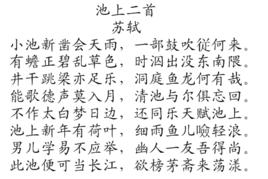 池上二首
苏轼
小池新凿会天雨，一部鼓吹従何来。
有蟾正碧乱草色，时泅出没东南隈。
井干跳梁亦足乐，洞庭鱼龙何有哉。
能歌德声莫入月，清池与尔俱忘回。
不作太白梦日边，还同乐天赋池上。
池上新年有荷叶，细雨鱼儿噞轻浪。
男儿学易不应举，幽人一友吾得尚。
此池便可当长江，欲榜茅斋来荡漾。